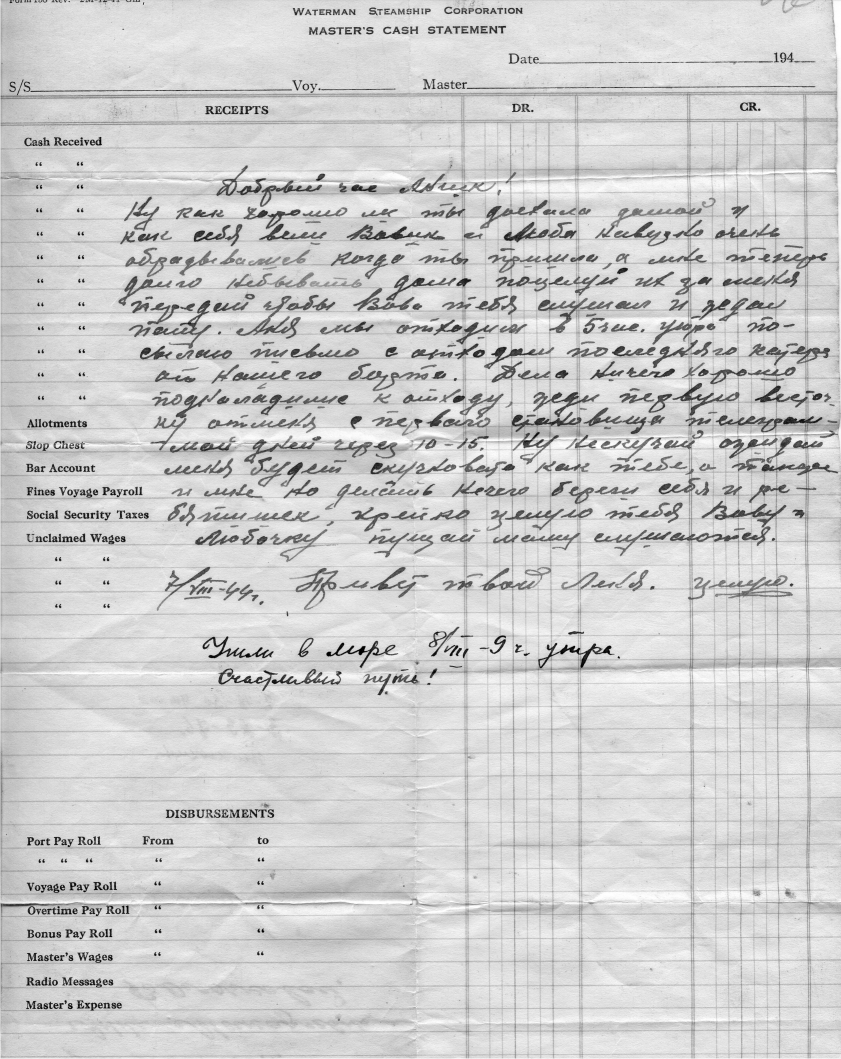 WATERMAN STEAMSHIP CORPORATION
MASTER'S CASH STATEMENT
Date 194
S/S Voy. Master
RECEIPTS DR. CR.
Cash Received
“ “
“ “ Добрый час !
“ “ Ну как хорошо ли ты доехала домой и
“ “ как себя вели Вовик и Люба навузно очень
“ “ обрадывались когда ты пришла, а мне теперь
“ “ долго небывать дома поцелуй их за меня
“ “ передай чтобы Вова тебя слушал и ждал
“ “ папу. мы отходим в 5 час. утра по-
“ “ сылаю письмо с отходом последняго катера
“ “ от нашего борта. Дела ничего хорошо
“ “ к отходу, жди первую весточ-
Allotments ку отменя с первого становища телеграм-
Slop Chest мой дней через 10-15. Ну нескучай ожидай
Bar Account меня будет скучновато как тебе, а также
Fines Voyage Payroll и мне но делать нечего береги себя и ре-
Social Security Taxes бятишек, крепко целую тебя Вову и
Unclaimed Wages Любочку пущай маму слушаются.
“ “
“ “ 7/VIII-44г. Привет твой целую.
“ “
Ушли в море 8/VIII - 9 ч. утра.
Счастливый путь!
DISBURSEMENTS
Port Pay Roll From to
“ “ “ “ “
Voyage Pay Roll “ “
Overtime Pay Roll “ “
Bonus Pay Roll “ “
Master's Wages “ “
Radio Messages
Master's Expense